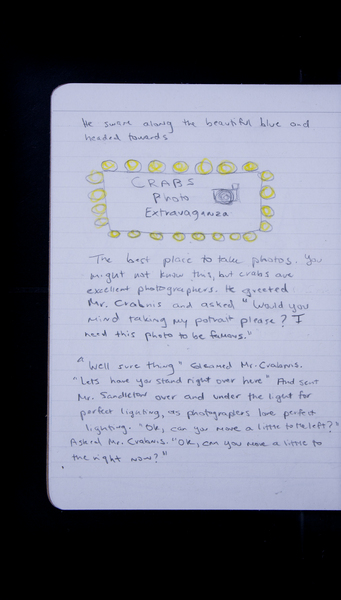 He swam along the beautiful blue and
headed towards
CRABS
Photo
Extravaganza
The best place to take photos. You
might not know this, but crabs are
excellent photographers. He greeted
Mr. Crabnis and asked "Would you
mind taking my potrait please? I
need this photo to be famous."
"Well sure thing" Gleamed Mr. Crabnis.
"Lets have you stand right over here" And sent
Mr. Sandletow over and under the light for
perfect lighting, as photographers love perfect
lighting. "Ok, can you move a little to the left?"
Asked Mr. Crabnis. "Ok, can you move a little to
the right now?"